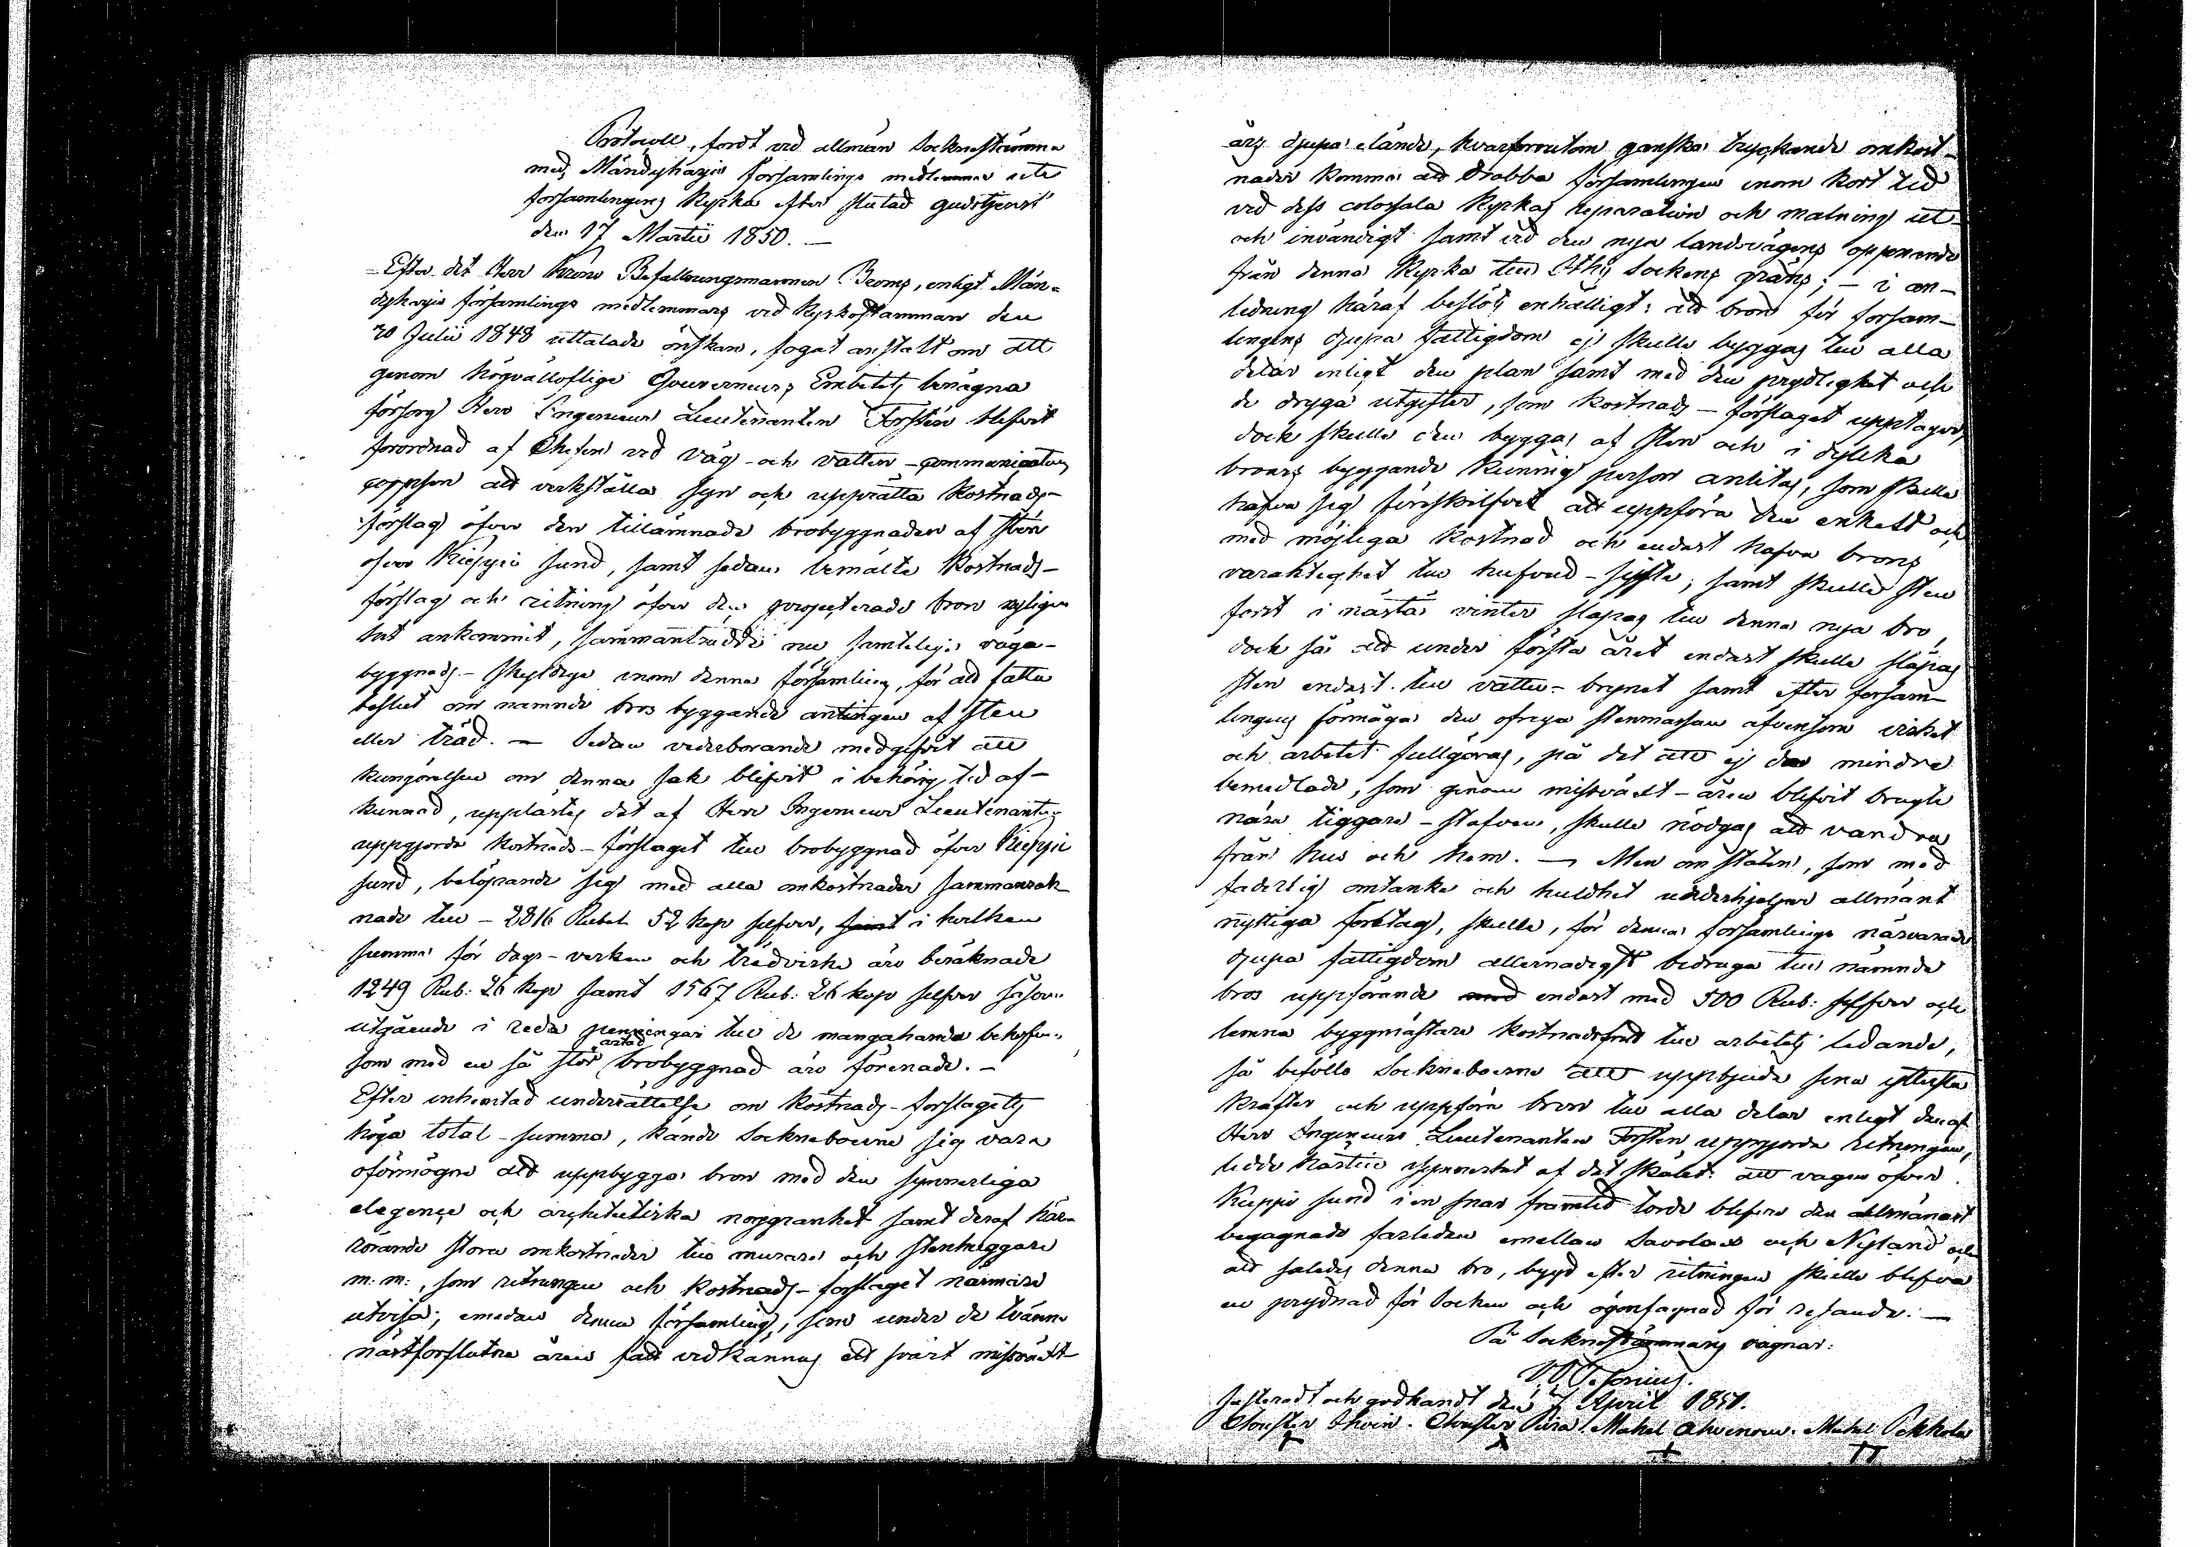 Protocoll, fördt vid allmän Sockenstämma
med Mändyharju församlings medlemmar uti
församlingens Kyrka efter slutad gudstjenst
den 17 Martii 1850. —
– Efter det Herr Krono Befallningsmannen Broms, enligt Män-
dyharju församlings medlemmars vid Kyrkostämman den
30 Julii 1848 uttalade önskan, fogat anstalt om att
genom högvälloflige Gouverneurs Embetets benägna
försorg Herr Ingenieur Lieutenanten Forstén blifvit
förordnad af Chefen vid väg- och vatten-communications
corpsen att verkställa syn och upprätta Kostnads-
förslag öfver den tillämnade brobyggnaden af sten
öfver Kieppi sund, samt sedan bemälte Kostnads-
förslag och ritning öfver den projecterade bron nyligen
hit ankommit, sammanträdde nu samtelige väga-
byggnads-skyldige inom denna församling, för att fatta
beslut om nämnde bros byggande antingen af sten
eller träd. — Sedan vederbörande medgifvit att
kungörelsen om denna sak blifvit i behörig tid af-
kunnad, upplästes det af Herr Ingenieur Lieutenanten
uppgjorde kostnads-förslaget till brobyggnad öfver Kieppi
sund, belöpande sig med alla omkostnader sammanräk-
nade till – 2816 Rubel 52 kop silfver, samt i hvilken
summa för dags-verken och trädvirke äro beräknade
1249 Rub: 26 kop samt 1567 Rub: 26 kop silfver såsom
utgående i reda penningar till de mångahanda behofven,
som med en så stor artad brobyggnad äro förenade. –
Efter inhemtad underrättelse om Kostnads-förslagets
höga total-summa, kände Sockneboerne sig vara
oförmögne att uppbygga bron med den synnerliga
elegence och architectiska noggranhet samt deraf här-
rörande stora omkostnader till murare och stenhuggare
m: m:, som ritningen och kostnads-förslaget närmare
utvisa; emedan denna församling, som under de tvänne
nästförflutne åren fått vidkännas ett svårt missväxt-
års djupa elände, hvarförutom ganska tryckande omkost-
nader komma att drabba församlingen inom kort tid
vid dess colossala Kyrkas reparation och målning ut-
och invändigt samt vid den nya landsvägens öppnande
från denna Kyrka till Ithis Sockens gräns; – i an-
ledning häraf beslöts enhälligt: att bron för försam-
lingens djupa fattigdom ej skulle byggas till alla
delar enligt den plan samt med den prydlighet och
de dryga utgifter, som kostnads-förslaget upptager,
dock skulle den byggas af sten och i dylika
broars byggande kunnig person anlitas, som skulle
hafva sig föreskrifvet att uppföra den enkelt och
med möjliga kostnad och endast hafva brons
varaktighet till hufvud-syfte; samt skulle sten
först i nästa vinter släpas till denna nya bro,
dock så att under första året endast skulle släpas
sten endast till vatten-brynet samt efter försam-
lingens förmåga den öfriga stenmassan äfvensom virket
och arbetet fullgöras, på det att ej de mindre
bemedlade, som genom missväxt-åren blifvit bragte
nära tiggare-stafven, skulle nödgas att vandra
från hus och hem. — Men om staten, som med
faderlig omtanke och huldhet understödjer allmänt
nyttiga företag, skulle, för denna församlings närvarande
djupa fattigdom allernådigst bidraga till nämnde
bros uppförande med endast med 500 Rub: silfver och
lemna byggmästare kostnadsfritt till arbetets ledande,
så beföllo Sockneboerne att uppbjuda sina yttersta
krafter och uppföra bron till alla delar enligt den af
Herr Ingenieurs Lieutenanten Forstén uppgjorde ritningen,
ledde härtill uppmuntrat af det skälet: att vägen öfver
Kieppi sund i en snar framtid torde blifva den allmännast
begagnade farleden emellan Savolax och Nyland och
att således denna bro, bygd efter ritningen skulle blifva
en prydnad för Socken och ögonfägnad för resande: —
På Socknestämmans vägnar:
Justeradt och godkändt den 7 April 1850.
Mahel Ahvenow. Mahel Pekkola